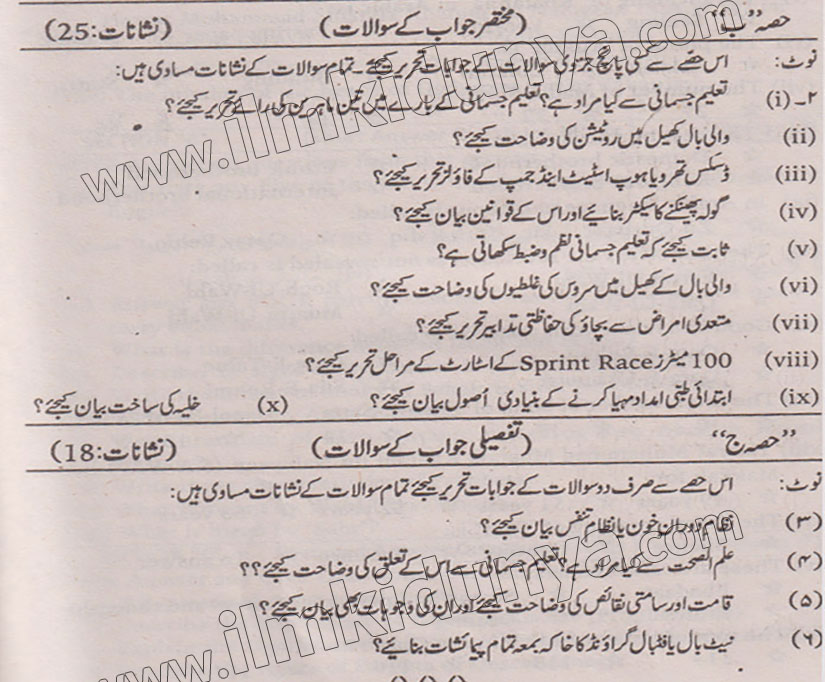 حصہ ”ب“ (مختصر جواب کے سوالات) (نشانات:25)
نوٹ: اس حصّے سے کسی پانچ جزوی سوالات کے جوابات تحریر کیجئے۔ تمام سوالات کے نشانات مساوی ہیں:
۲۔ (i) تعلیم جسمانی سے کیا مراد ہے؟ تعلیم جسمانی کے بارے میں تین ماہرین کی رائے تحریر کیجئے؟
(ii) والی بال کھیل میں روٹیشن کی وضاحت کیجئے؟
(iii) ڈسکس تھرو یا ہوپ اسٹیپ اینڈ جمپ کے فاؤلز تحریر کیجئے؟
(iv) گولہ پھینکنے کا سیکٹر بنائیے اور اس کے قوانین بیان کیجئے؟
(v) ثابت کیجئے کہ تعلیم جسمانی نظم و ضبط سکھاتی ہے؟
(vi) والی بال کے کھیل میں سروس کی غلطیوں کی وضاحت کیجئے؟
(vii) متعدی امراض سے بچاؤ کی حفاظتی تدابیر تحریر کیجئے؟
(viii) 100 میٹرز Sprint Race کے اسٹارٹ کے مراحل تحریر کیجئے؟
(ix) ابتدائی طبّی امداد مہیا کرنے کے بنیادی اُصول بیان کیجئے؟ (x) خلیہ کی ساخت بیان کیجئے؟
حصہ ”ج“ (تفصیلی جواب کے سوالات) (نشانات:18)
نوٹ: اس حصے سے صرف دو سوالات کے جوابات تحریر کیجئے تمام سوالات کے نشانات مساوی ہیں:
(۳) نظام دوران خون یا نظام تنفس بیان کیجئے؟
(۴) علم الصحت سے کیا مراد ہے؟ تعلیم جسمانی سے اس کے تعلق کی وضاحت کیجئے؟؟
(۵) قامت اور سامتی نقائص کی وضاحت کیجئے اور ان کی وجوہات بھی بیان کیجئے؟
(۶) نیٹ بال یا فٹبال گراؤنڈ کا خاکہ بمعہ تمام پیمائشات بنائیے؟
www.ilmkidunya.com
www.ilmkidunya.com
www.ilmkidunya.com